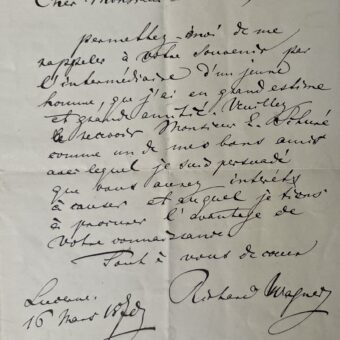 Cher Monsieur
permettez-moi de me
rappeler à votre souvenir par
l'intermédiaire d'un jeune
homme, que j'ai en grand estime
et grande amitié. Veuillez
le recevoir Monsieur E. Schuré
comme un de mes bons amis
avec lequel je suis persuadé
que vous aurez intérêts
à causer et auquel je tiens
à procurer l'avantage de
votre connaissance.
Tout à vous de cœur
Richard Wagner
Lucerne.
16 Mars